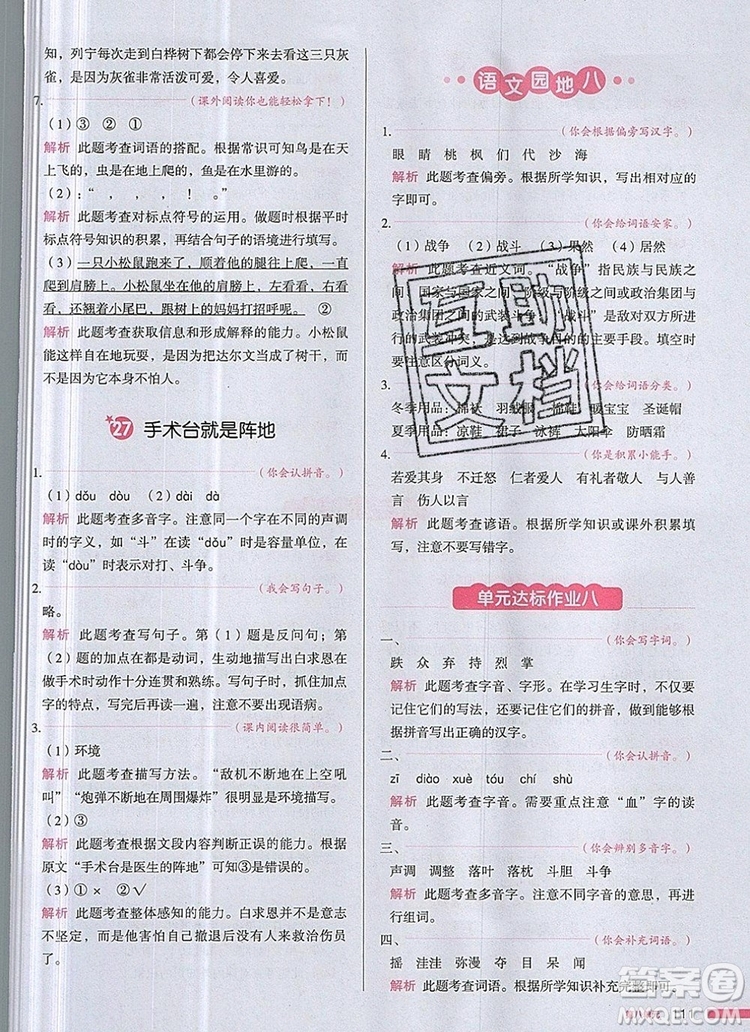 知，列宁每次走到白桦树下都会停下来看这三只灰
雀，是因为灰雀非常活泼可爱，令人喜爱。
7.（课外阅读你也能轻松拿下！）
（1）③ ② ①
解析 此题考查词语的搭配。根据常识可知鸟在天
上飞的，虫是在地上爬的，鱼是在水里游的。
（2）：“ ， ， ！ 。”
解析 此题考查对标点符号的运用。做题时根据平时
标点符号知识的积累，再结合句子的语境进行填写。
（3）一只小松鼠跑来了，沿着他的腿往上爬，一直
爬到肩膀上。小松鼠坐在他的肩膀上，左看看，右看
看，还翘着小尾巴，跟树上的妈妈打招呼呢。 ②
解析 此题考查获取信息和形成解释的能力。小松鼠
能这样自在地玩耍，是因为把达尔文当成了树干，而
不是因为它本身不怕人。
27 手术台就是阵地
1.（你会认拼音。）
（1）dǒu dòu （2）dài dài
解析 此题考查多音字。注意同一个字在不同的声调
时的字义，如“斗”在读“dǒu”时表示容量单位；在
读“dòu”时表示对打、斗争。
2.（我会写句子。）
略。
解析 此题考查写句子。第（1）题是反问句；第
（2）题的加点在都是动词，生动地描写出白求恩在
做手术时动作十分连贯和熟练。写句子时注意以上加点
字的特点，写完再读一遍，注意不要出现语病。
3.（课内阅读很简单。）
（1）环境
解析 此题考查描写方法。“敌机不断地在上空吼
叫”“炮弹不断地在周围爆炸”很明显是环境描写。
（2）③
解析 此题考查根据文段内容判断正误的能力。根据
原文“手术台是医生的阵地”可知③是错误的。
（3）① × ②√
解析 此题考查整体感知的能力。白求恩并不是意志
不坚定，而是担心自己撤退后没有医生来救治伤员。
语文园地八
1.（你会根据偏旁写汉字。）
眼 睛 桃 枫 们 代 沙 海
解析 此题考查偏旁。根据所学知识，写出相对应的
字即可。
2.（你会给词语安家。）
（1）战争 （2）战斗 （3）果然 （4）居然
解析 此题考查近义词。“战争”指民族与民族之
间、国家与国家之间、阶级与阶级之间或政治集团与
政治集团之间的武装斗争；“战斗”是敌对双方所进
行的武装冲突，是达到战争目的的主要手段。填空时
要注意区分词义。
3.（你会给词语分类。）
冬季用品：棉袄 羽绒服 棉鞋 暖宝宝 圣诞帽
夏季用品：凉鞋 裙子 泳裤 太阳伞 防晒霜
4.（你是积累小能手。）
若爱其身 不迁怒 仁者爱人 有礼者敬人 善
言 伤人以言
解析 此题考查谚语。根据所学知识或课外积累填
写，注意不要写错字。
单元达标作业八
一、（你会写字词。）
跌 众 弃 持 烈 掌
解析 此题考查字音、字形。在学习生字时，不仅要
记住它们的写法，还要记住它们的拼音，这样才能根
据拼音写出正确的汉字。
二、（你会认拼音。）
zī diào xuè tóu chí shù
解析 此题考查字音。需要重点注意“血”字的读
音。
三、（你会辨别多音字。）
声调 调整 落叶 落枕 斗胆 斗争
解析 此题考查多音字。根据不同字音的意思，再进
行组词。
四、（你会补充词语。）
摇 洼洼 弥漫 夺目 呆 闻
解析 此题考查词语。根据所学知识补充完整即可。
互助
文档
答案圈